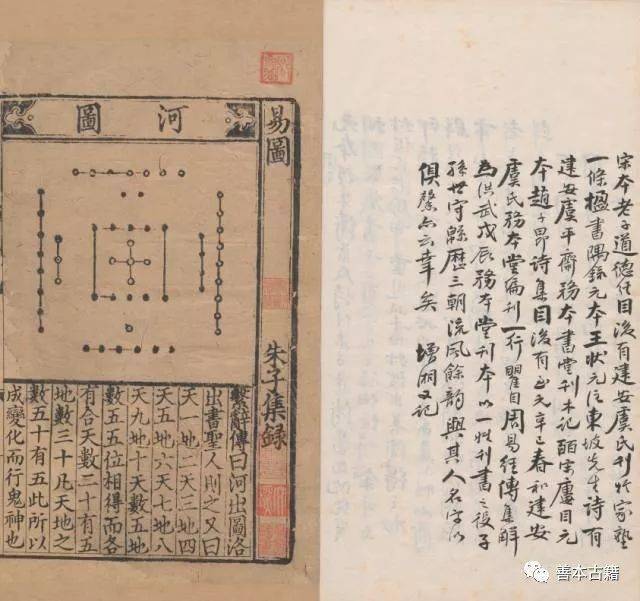 宋本老子道德經目後有建安虞氏刊於家塾
一條楹書隅錄元本王狀元注東坡先生詩有
建安虞平齋務本書堂刊木記皕宋廔目元
本趙子昂詩集目後有至元辛巳春和建安
虞氏務本堂編刊一行瞿目周易經傳集解
為洪武戊辰務本堂刊本以一姓刊書之役子
孫世守緜歷三朝流風餘韻與其人名字以
俱馨亦云幸矣 增湘又記
易圖
朱子集錄
河圖
繫辭傳曰河出圖洛
出書聖人則之又曰
天一地二天三地四
天五地六天七地八
天九地十天數五地
數五五位相得而各
有合天數二十有五
地數三十凡天地之
數五十有五此所以
成變化而行鬼神也
善本古籍